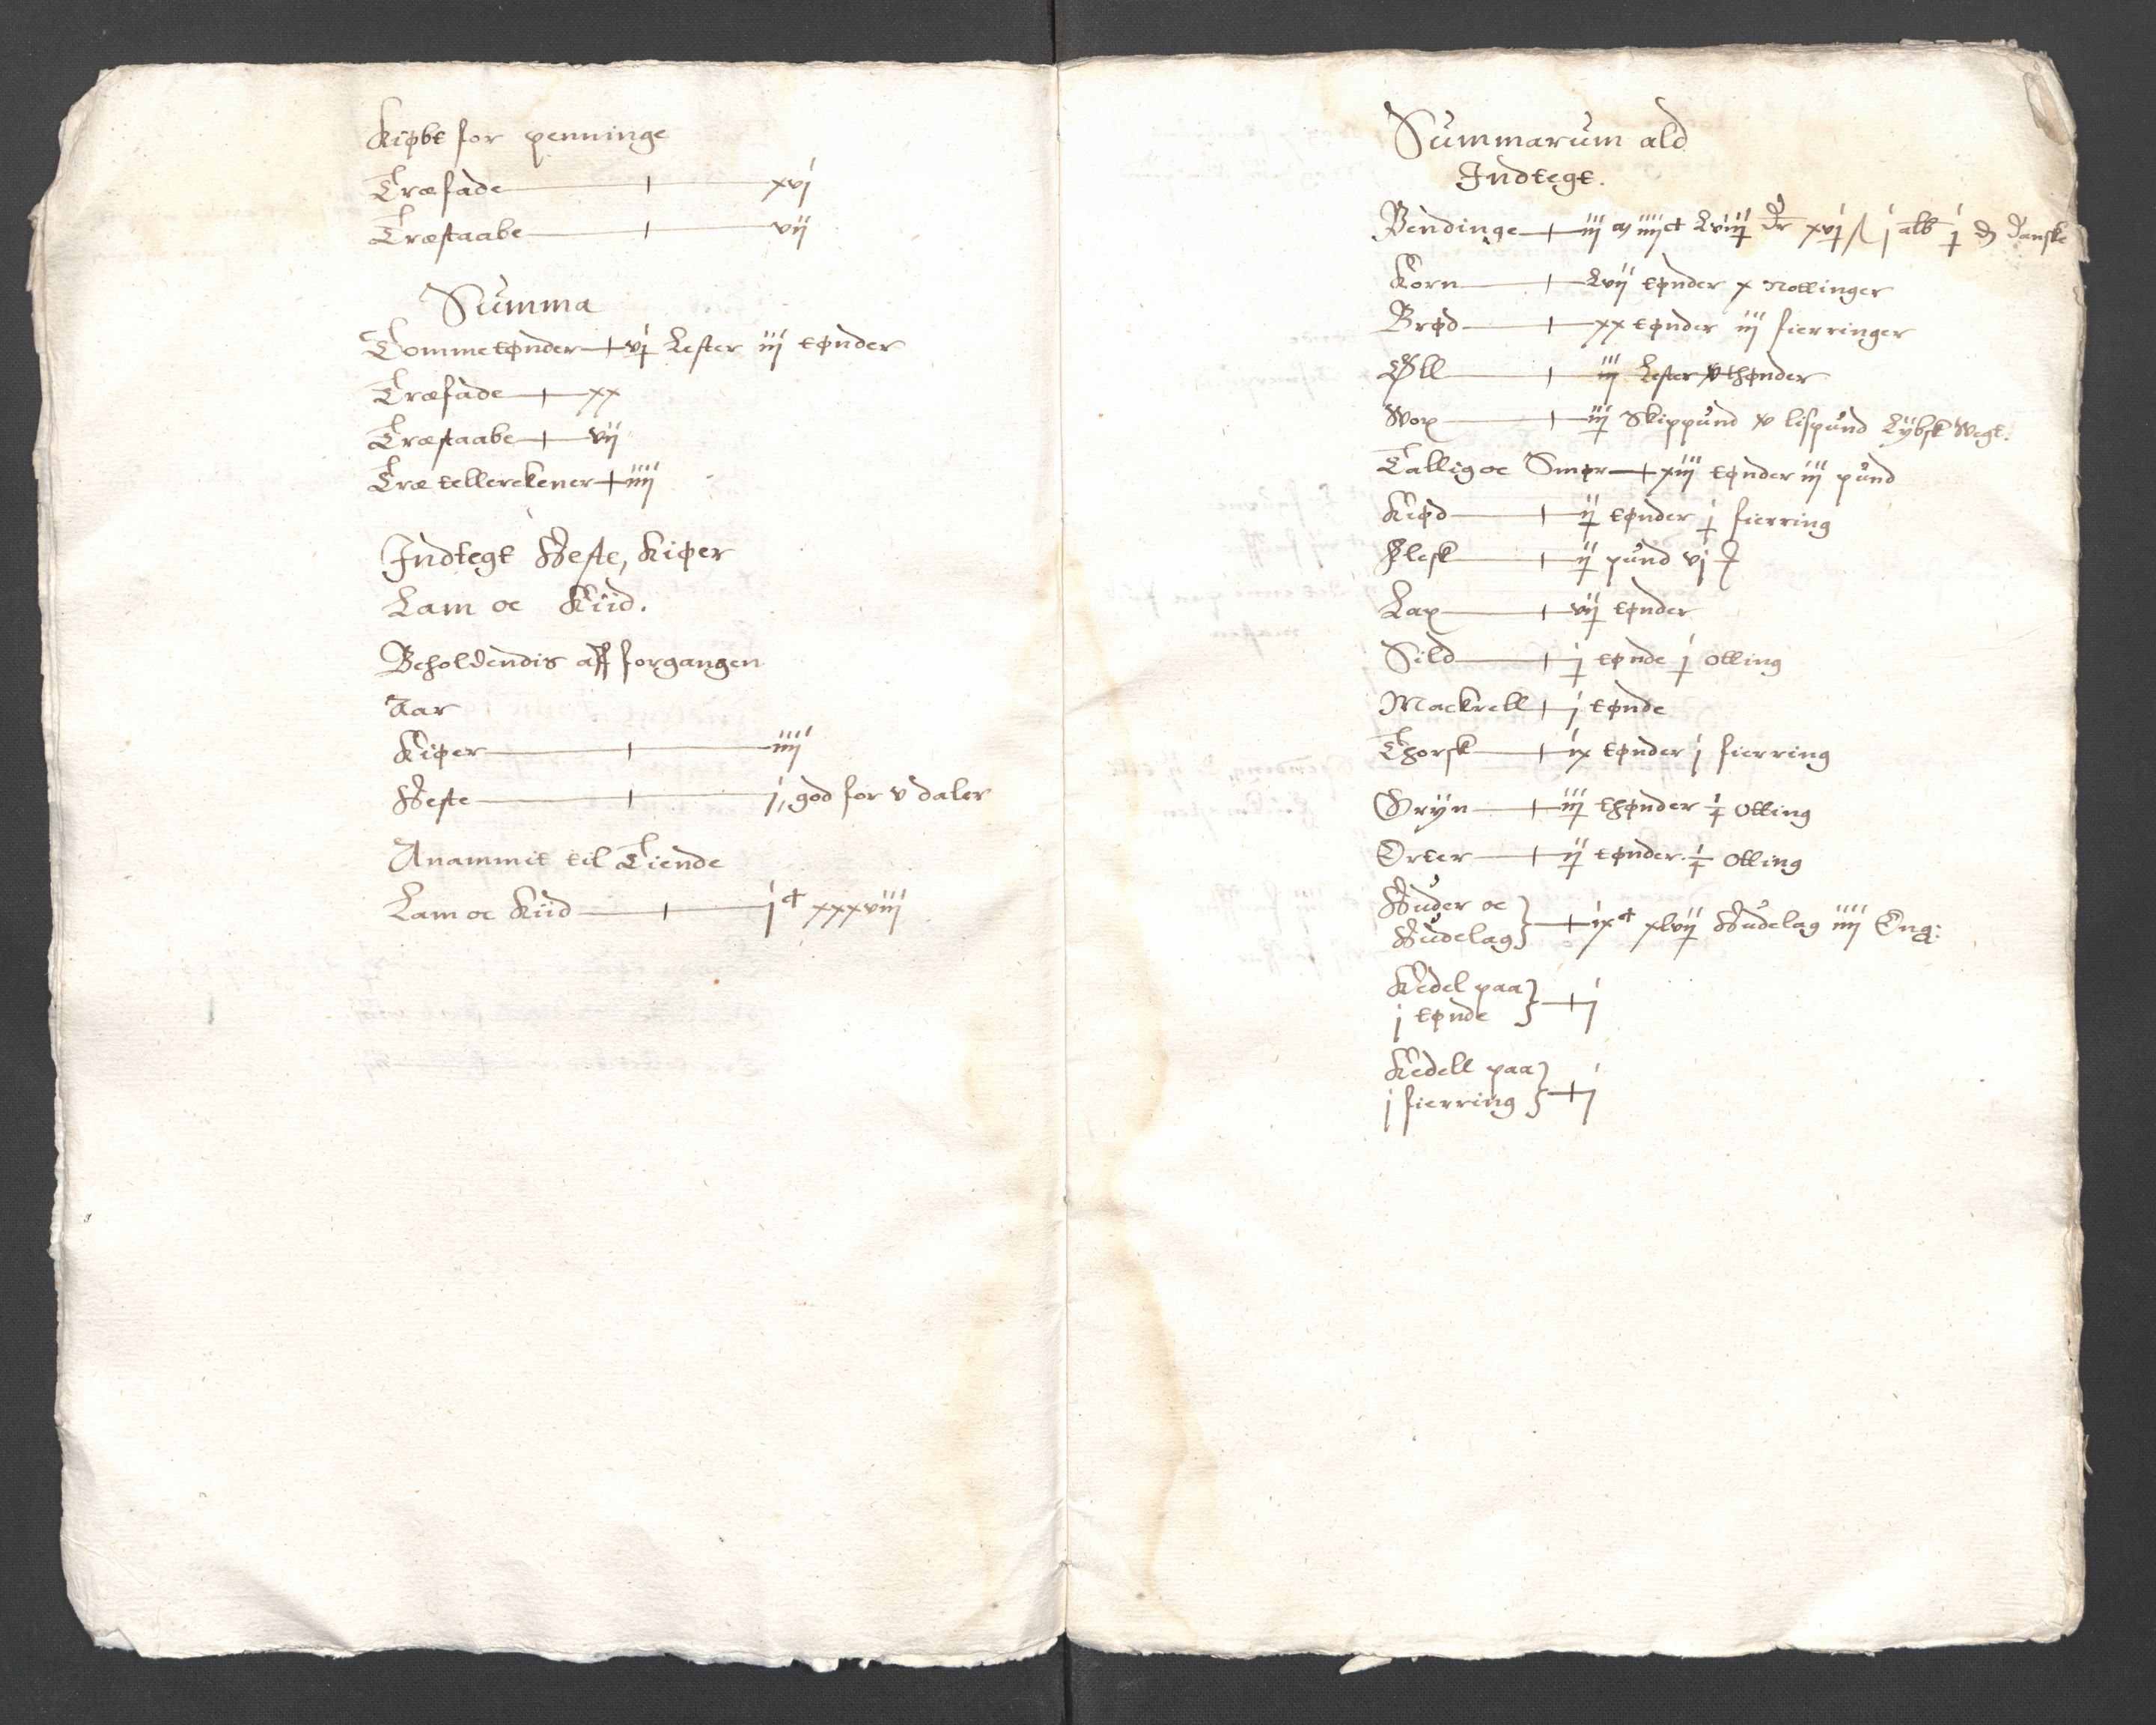 Kiøbt for penninge
Træfade xvj
Træstaabe vij
Summa
Tommetønder vj Lester iij tønder
Træfade xx
Træstaabe vij
Træ tellerckener iiij
Indtegt Heste, Kiøer
Lam oc Kiid.
Beholdendis aff forgangen
Aar
Kiøer iiij
Heste j, god for v daler
Anammit til Tiende
Lam oc Kiid jᶜ xxxviij
Summarum ald
Indtegt.
Pendinge iij m iiijᶜ Lviij dr xvj ß j alb j d danske
Korn Lvij tønder x Nottinger
Brød xx tønder iij fierringer
Øll iij Lester xv thønder
Wox iij Skippund xv lispund Lybsk Wegt.
Tallig oc Smør xiij tønder iij pund
Kiød ij tønder j fierring
Flesk ij pund vj
Lax vij tønder
Sild j tønde j Otting
Mackrell j tønde
Thorsk ix tønder j fierring
Gryn iij thønder j Otting
Erter ij tønder j Otting
Huder oc
Hudelag ixᶜ xlvij Hudelag iiij Eng:
Kedel paa
j tønde j
Kedell paa
j fierring j